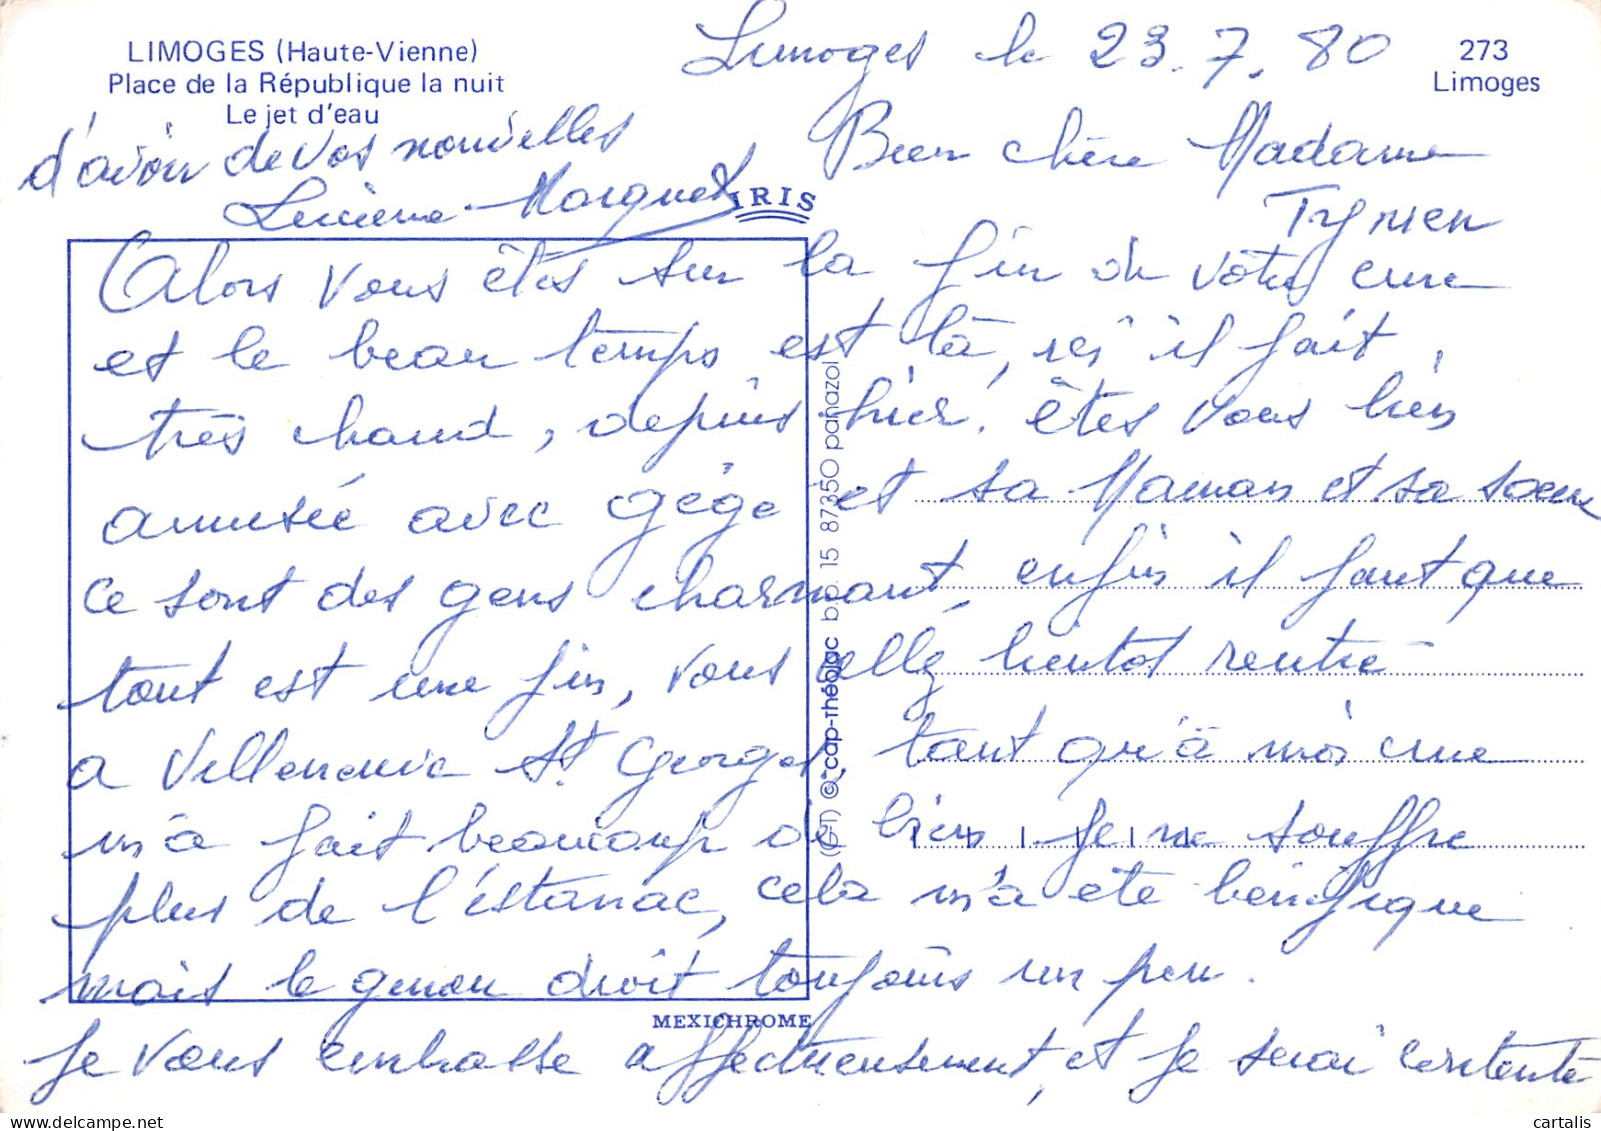 LIMOGES (Haute-Vienne)
Place de la République la nuit
Le jet d'eau
273
Limoges
Limoges le 23.7.80
Bien chère Madame
Tynien
Alors vous êtes sur la fin de votre cure
et le beau temps est là, ici il fait,
très chaud, depuis hier. êtes vous bien
amusée avec gégé et sa Maman et sa soeur
ce sont des gens charmant, enfin il faut que
tout est une fin, vous elle bientot rentré
a Villeneuve St. Georges, tant qu'à moi cure
m'a fait beaucoup de bien, je ne souffre
plus de l'estomac, cela m'a été bénéfique
mais le genou droit toujours un peu.
Je vous embrasse affectueusement, et je serai contente
d'avoir de vos nouvelles
Lucienne Marquet
IRIS
MEXICHROME
(G-I) © cap-théojac b.p. 15 87350 panazol
cartalis.com